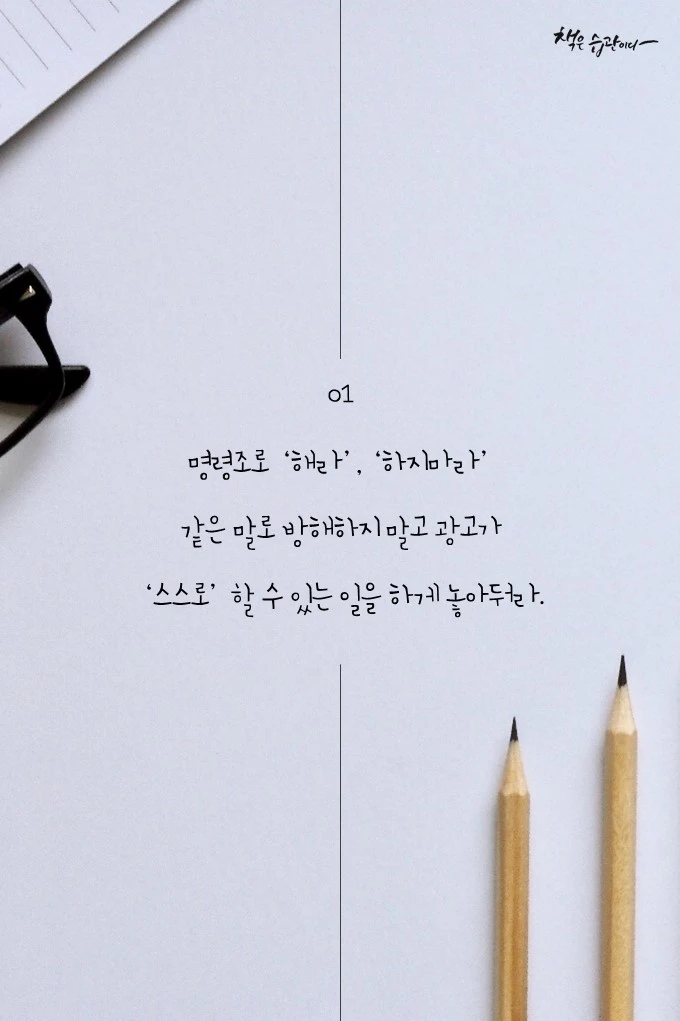 책은 습관이다
01
명령조로 ‘해라’, ‘하지마라’
같은 말로 방해하지 말고 광고가
‘스스로’ 할 수 있는 일을 하게 놓아두워라.